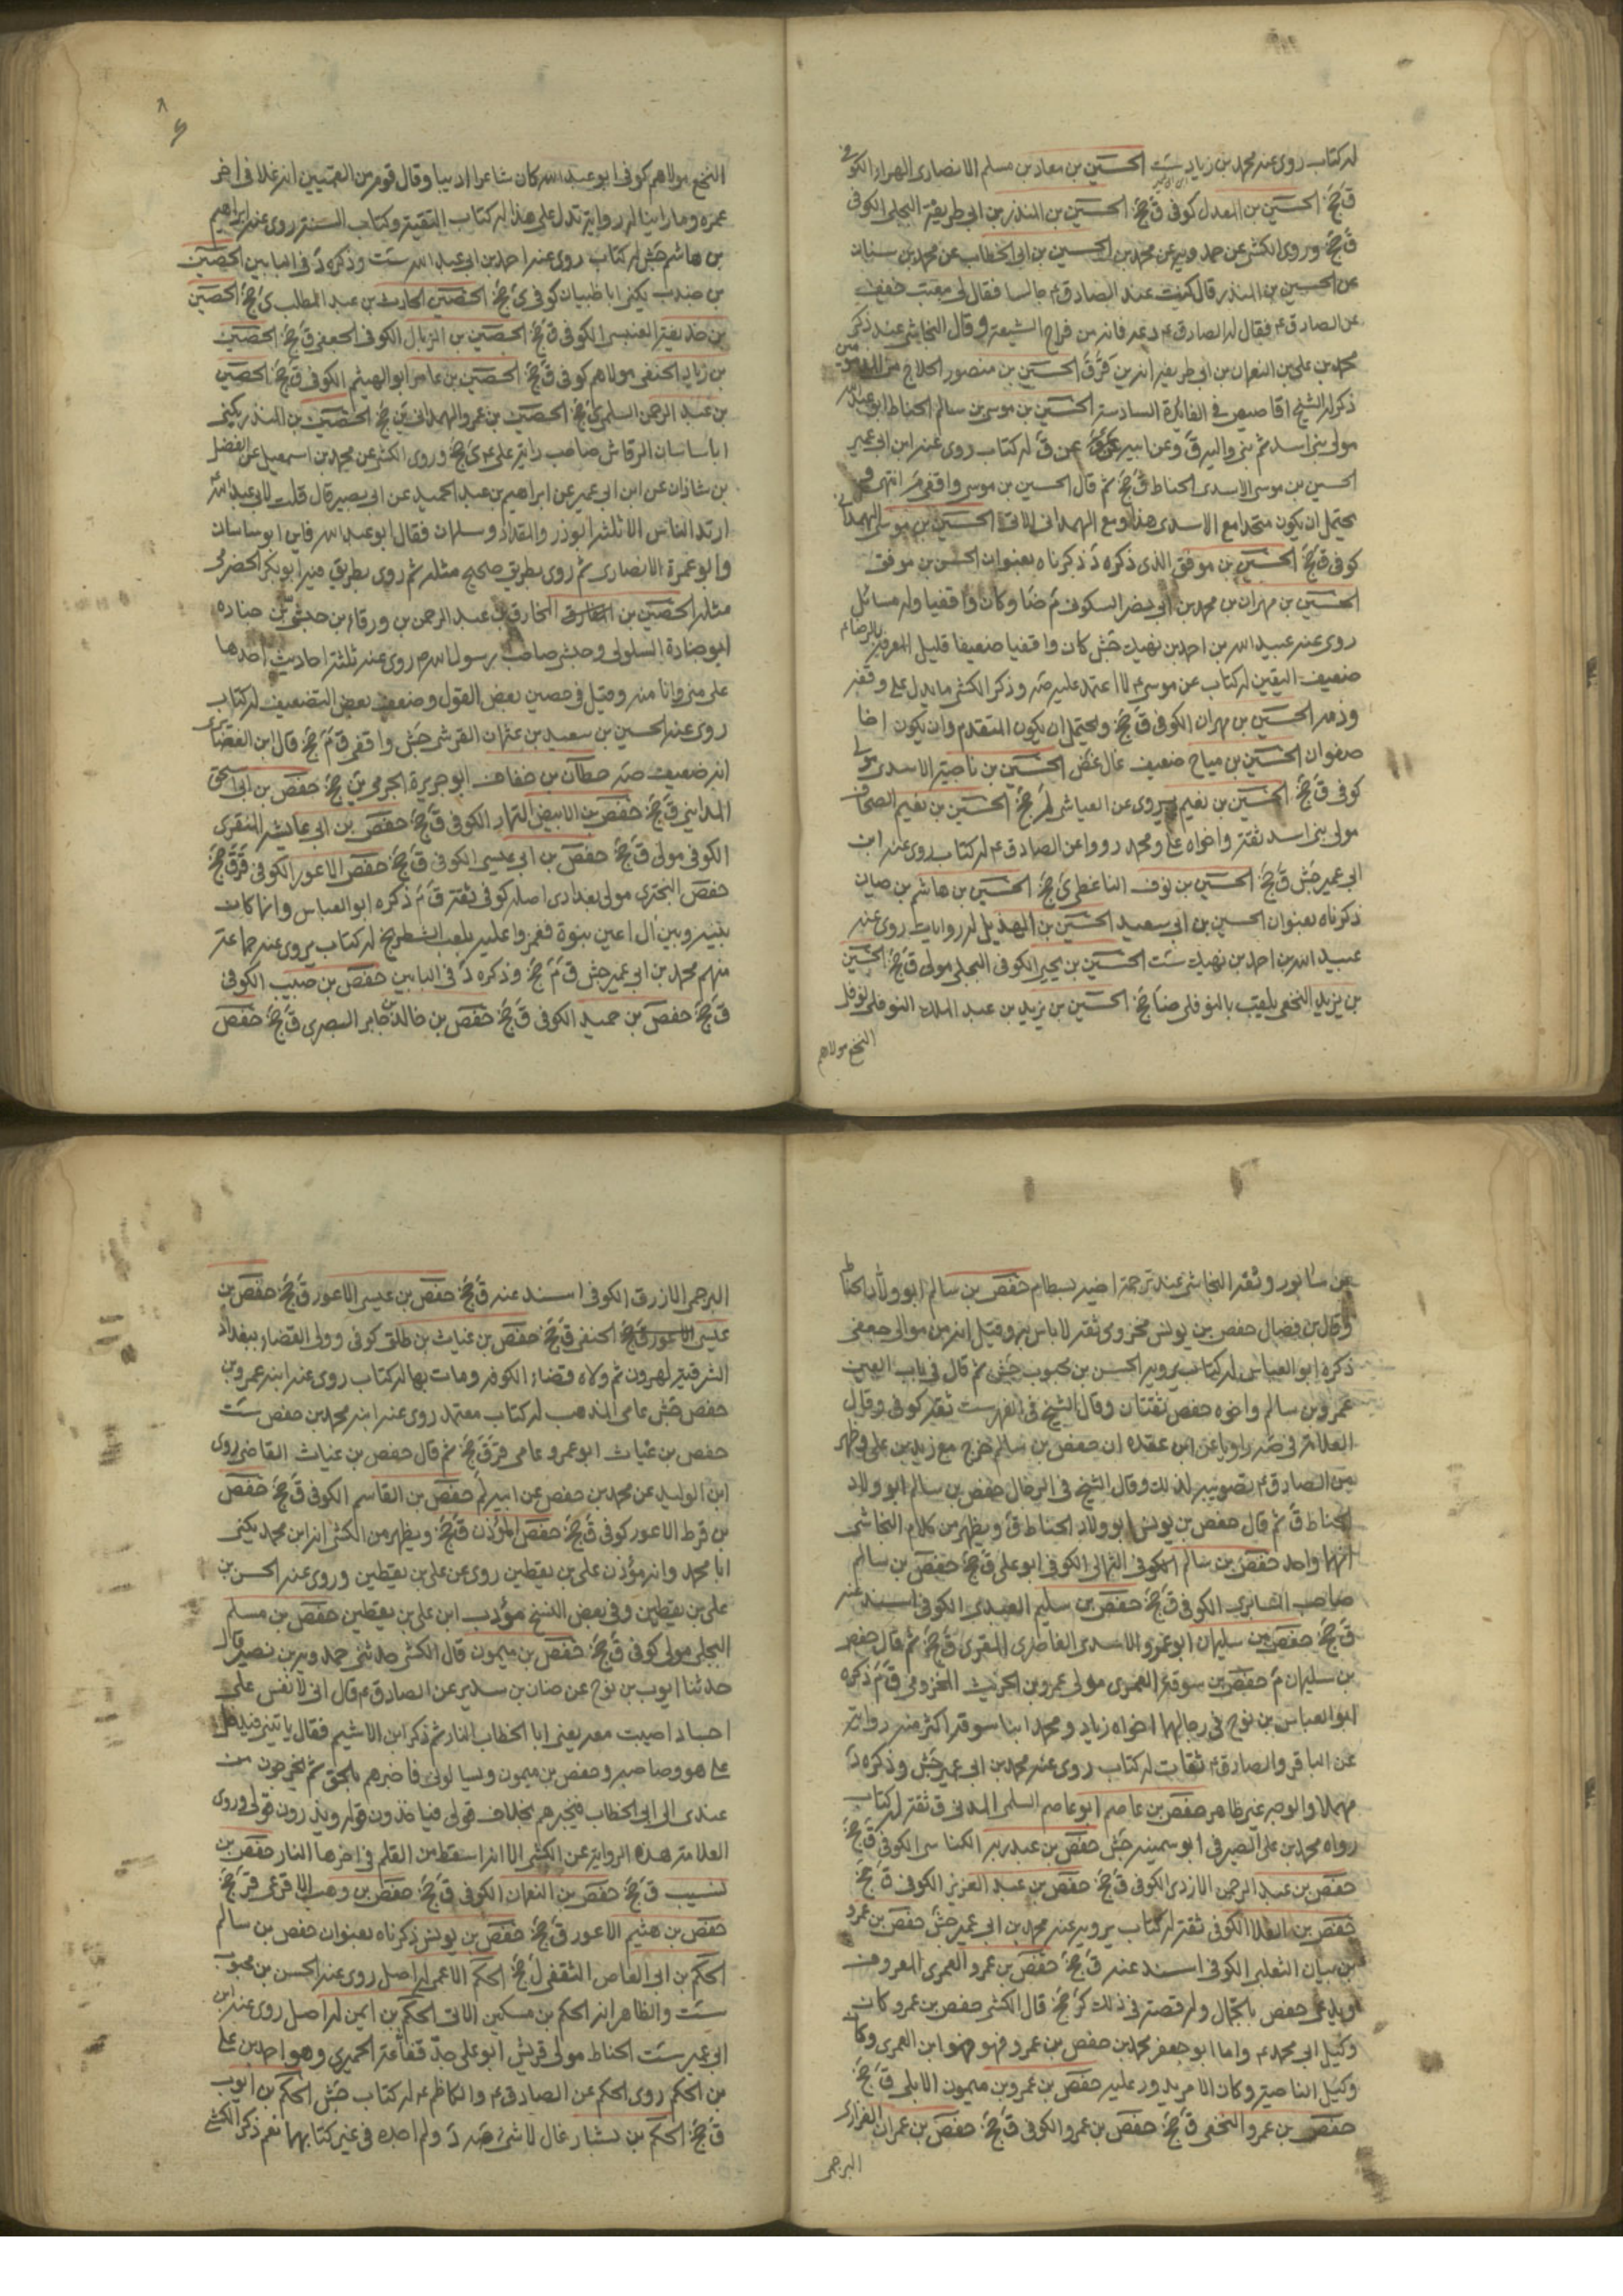 له كتاب روى عنه محمد بن زياد ست الحسين بن معاذ بن مسلم الانصارى الهراء الكوفى
ق جخ الحسين بن المعدل كوفى ق جخ الحسين بن المنذر بن ابى طريفة البجلى الكوفى
ق جخ وروى الكشى عن حمدويه عن محمد بن الحسين بن ابى الخطاب عن محمد بن سنان
عن الحسين بن المنذر قال كنت عند الصادق ع جالسا فقال لى معتب خفف
عن الصادق ع فقال له الصادق ع دعه فانه من فراخ الشيعة وقال النجاشى عند ذكر
محمد بن على بن النعمان بن ابى طريفة انه من ق ر ق الحسين بن منصور الحلاج من
ذكر له الشيخ اقاصيص فى الفائدة السادسة الحسين بن موسى بن سالم الحناط ابو عبد الله
مولى بنى اسد ثم بنى والبة ق وعن ابيه عن ق له كتاب روى عنه ابن ابى عمير
الحسين بن موسى الاسدى الحناط ق جخ ثم قال الحسين بن موسى واقفى م انتهى و
يحتمل ان يكون متحدا مع الاسدى هذا ومع الهمدانى الاتى الحسين بن موسى الهمدانى
كوفى ق جخ الحسين بن موفق الذى ذكره د ذكرناه بعنوان الحسن بن موفق
الحسين بن مهران بن محمد بن ابى نصر السكونى م ضا وكان واقفيا وله مسائل
روى عنه عبيد الله بن احمد بن نهيك جش كان واقفيا ضعيفا قليل المعرفة بالرضا ع
ضعيف اليقين له كتاب عن موسى ع لا اعتمد عليه صه وذكر الكشى ما يدل على وقفه
وذمه الحسين بن مهران الكوفى ق جخ ويحتمل ان يكون المتقدم وان يكون اخا
صفوان الحسين بن مياح ضعيف غال غض الحسين بن ناجية الاسدى مولى
كوفى ق جخ الحسين بن نعيم يروى عن العياشى لم جخ الحسين بن نعيم الصحاف
مولى بنى اسد ثقة واخواه على ومحمد رووا عن الصادق ع له كتاب روى عنه ابن
ابى عمير جش ق جخ الحسين بن نوف الناعطى ى جخ الحسين بن هاشم بن حيان
ذكرناه بعنوان الحسين بن ابى سعيد الحسين بن الهذيل له روايات روى عنه
عبيد الله بن احمد بن نهيك ست الحسين بن يحيى الكوفى البجلى مولى ق جخ الحسين
بن يزيد النخعى يلقب بالنوفلى ضا جخ الحسين بن يزيد بن عبد الملك النوفلى نوفل
النخع مولاهم
النخع مولاهم كوفى ابو عبد الله كان شاعرا اديبا وقال قوم من القميين انه غلا فى اخر
عمره وما راينا له رواية تدل على هذا له كتاب التقية وكتاب السنة روى عنه ابراهيم
بن هاشم جش له كتاب روى عنه احمد بن ابى عبد الله ست وذكره د فى البابين الحصين
بن جندب يكنى ابا ظبيان كوفى ى جخ الحصين الحارث بن عبد المطلب ى جخ الحصين
بن حذيفة العبسى الكوفى ق جخ الحصين بن الزبال الكوفى الجعفى ق جخ الحصين
بن زياد الحنفى مولاهم كوفى ق جخ الحصين بن عامر ابو الهيثم الكوفى ق جخ الحصين
بن عبد الرحمن السلمى ى جخ الحصين بن عمرو الهمدانى ين جخ الحصين بن المنذر يكنى
ابا ساسان الرقاشى صاحب راية على ع ى جخ وروى الكشى عن محمد بن اسمعيل عن الفضل
بن شاذان عن ابن ابى عمير عن ابراهيم بن عبد الحميد عن ابى بصير قال قلت لابى عبد الله
ارتد الناس الا ثلثة ابوذر والمقداد وسلمان فقال ابو عبد الله فاين ابو ساسان
وابو عمرة الانصارى ثم روى بطريق صحيح مثله ثم روى بطريق فيه ابو بكر الحضرمى
مثله الحصين بن المخارق بن عبد الرحمن بن ورقاء بن حبشى بن جناده
ابو جنادة السلولى وحبشى صاحب رسول الله ص روى عنه ثلثة احاديث احدها
على منى وانا منه وقيل فى حصين بعض القول وضعف بعض التضعيف له كتاب
روى عنه الحسين بن سعيد بن عثمان القرشى جش واقفى ق م جخ قال ابن الغضائرى
انه ضعيف صه حطان بن خفاف ابو جريرة الجرمى ين جخ حفص بن ابى اسحق
المداينى ق جخ حفص بن الابيض التمار الكوفى ق جخ حفص بن ابى عايشة المنقرى
الكوفى مولى ق جخ حفص بن ابى عيسى الكوفى ق جخ حفص الاعور الكوفى قر ق جخ
حفص البخترى مولى بغدادى اصله كوفى ثقة ق م ذكره ابو العباس وانما كان
بينه وبين آل اعين نبوة فغمزوا عليه بلعب الشطرنج له كتاب يروى عنه جماعة
منهم محمد بن ابى عمير جش ق م جخ وذكره د فى البابين حفص بن حبيب الكوفى
ق جخ حفص بن حميد الكوفى ق جخ حفص بن خالد بن جابر البصرى ق جخ حفص
بن سابور وثقه النجاشى عند ترجمة اخيه بسطام حفص بن سالم ابو ولاد الحناط
وقال بن فضال حفص بن يونس مخزومى ثقة لا باس به وقيل انه من موالى جعفى
ذكره ابو العباس له كتاب يرويه الحسن بن محبوب جش ثم قال فى باب العين
عمرو بن سالم واخوه حفص ثقتان وقال الشيخ فى الفهرست ثقة كوفى وقال
العلامة فى صه راويا عن ابن عقده ان حفص بن سالم خرج مع زيد بن على وظهر
من الصادق ع تصويبه لذلك وقال الشيخ فى الرجال حفص بن سالم ابو ولاد
الحناط ق ثم قال حفص بن يونس ابو ولاد الحناط ق ويظهر من كلام النجاشى
انهما واحد حفص بن سالم الكوفى الثمالى الكوفى ابو على ق جخ حفص بن سالم
صاحب السابرى الكوفى ق جخ حفص بن سليم العبدى الكوفى اسند عنه
ق جخ حفص بن سليمان ابو عمرو الاسدى الغاضرى المقرى ق جخ ثم قال حفص
بن سليمان م حفص بن سوقة العمرى مولى عمرو بن الحريث المخزومى ق م ذكره
ابو العباس بن نوح فى رجالهما اخواه زياد ومحمد ابنا سوقة اكثر منه رواية
عن الباقر والصادق ع ثقات له كتاب روى عنه محمد بن ابى عمير جش وذكره د
مهملا والوجه غير ظاهر حفص بن عاصم ابو عاصم السلمى المدنى ق ثقة له كتاب
رواه محمد بن على الصيرفى ابو سمينة جش حفص بن عبد ربه الكناسى الكوفى ق جخ
حفص بن عبد الرحمن الازدى الكوفى ق جخ حفص بن عبد العزيز الكوفى ق جخ
حفص بن العلا الكوفى ثقة له كتاب يرويه عنه محمد بن ابى عمير جش حفص بن عمرو
بن بيان الثعلبى الكوفى اسند عنه ق جخ حفص بن عمرو العمرى المعروف
ويدعى حفص بالجمال وله قصة فى ذلك كر جخ قال الكشى حفص بن عمرو كان
وكيل ابى محمد ع واما ابو جعفر محمد بن حفص بن عمرو فهو فهو ابن العمرى وكان
وكيل الناحية وكان الامر يدور عليه حفص بن عمرو بن ميمون الابلى ق جخ
حفص بن عمرو النخعى ق جخ حفص بن عمرو الكوفى ق جخ حفص بن عمران الفزارى
البرجمى
البرجمى الازرق الكوفى اسند عنه ق جخ حفص بن عيسى الاعور ق جخ حفص بن
عيسى الاعور ق جخ الحنفى ق جخ حفص بن غياث بن طلق كوفى وولى القضاء ببغداد
الشرقية لهرون ثم ولاه قضاء الكوفة ومات بها له كتاب روى عنه ابنه عمرو بن
حفص جش عامى المذهب له كتاب معتمد روى عنه ابنه محمد بن حفص ست
حفص بن غياث ابو عمرو عامى قر ق جخ ثم قال حفص بن غياث القاضى روى
ابن الوليد عن محمد بن حفص عن ابيه لم حفص بن القاسم الكوفى ق جخ حفص
بن قرط الاعور كوفى ق جخ حفص المؤذن ق جخ ويظهر من الكشى انه ابن محمد يكنى
ابا محمد وانه مؤذن على بن يقطين روى عن على بن يقطين وروى عنه الحسن بن
على بن يقطين وفى بعض النسخ مؤدب ابن على بن يقطين حفص بن مسلم
البجلى مولى كوفى ق جخ حفص بن ميمون قال الكشى حدثنى حمدويه بن نصير قال
حدثنا ايوب بن نوح عن حنان بن سدير عن الصادق ع قال انى لانفس على
اجساد اصيبت معه يعنى ابا الخطاب النار ثم ذكر ابن الاشيم فقال ياتينى فيدخل
على هو وصاحبه وحفص بن ميمون ويسالونى فاخبرهم بالحق ثم يخرجون من
عندى الى ابى الخطاب فيخبرهم بخلاف قولى فياخذون قوله ويذرون قولى وروى
العلامة هذه الرواية عن الكشى الا انه اسقط من القلم فى اخرها النار حفص بن
نسيب ق جخ حفص بن النعمان الكوفى ق جخ حفص بن وهب قر جخ
حفص بن هيثم الاعور ق جخ حفص بن يونس ذكرناه بعنوان حفص بن سالم
الحكم بن ابى العاص الثقفى ل جخ الحكم الاعمى له اصل روى عنه الحسن بن محبوب
ست والظاهر انه الحكم بن مسكين الاتى الحكم بن ايمن له اصل روى عنه ابن
ابى عمير ست الحناط مولى قريش ابو على جد قفاعة الحميرى وهو احمد بن على
بن الحكم روى الحكم عن الصادق ع والكاظم ع له كتاب جش الحكم بن ايوب
ق جخ الحكم بن بشار غال لا شىء صه د ولم اجده فى غير كتابهما نعم ذكر الكشى